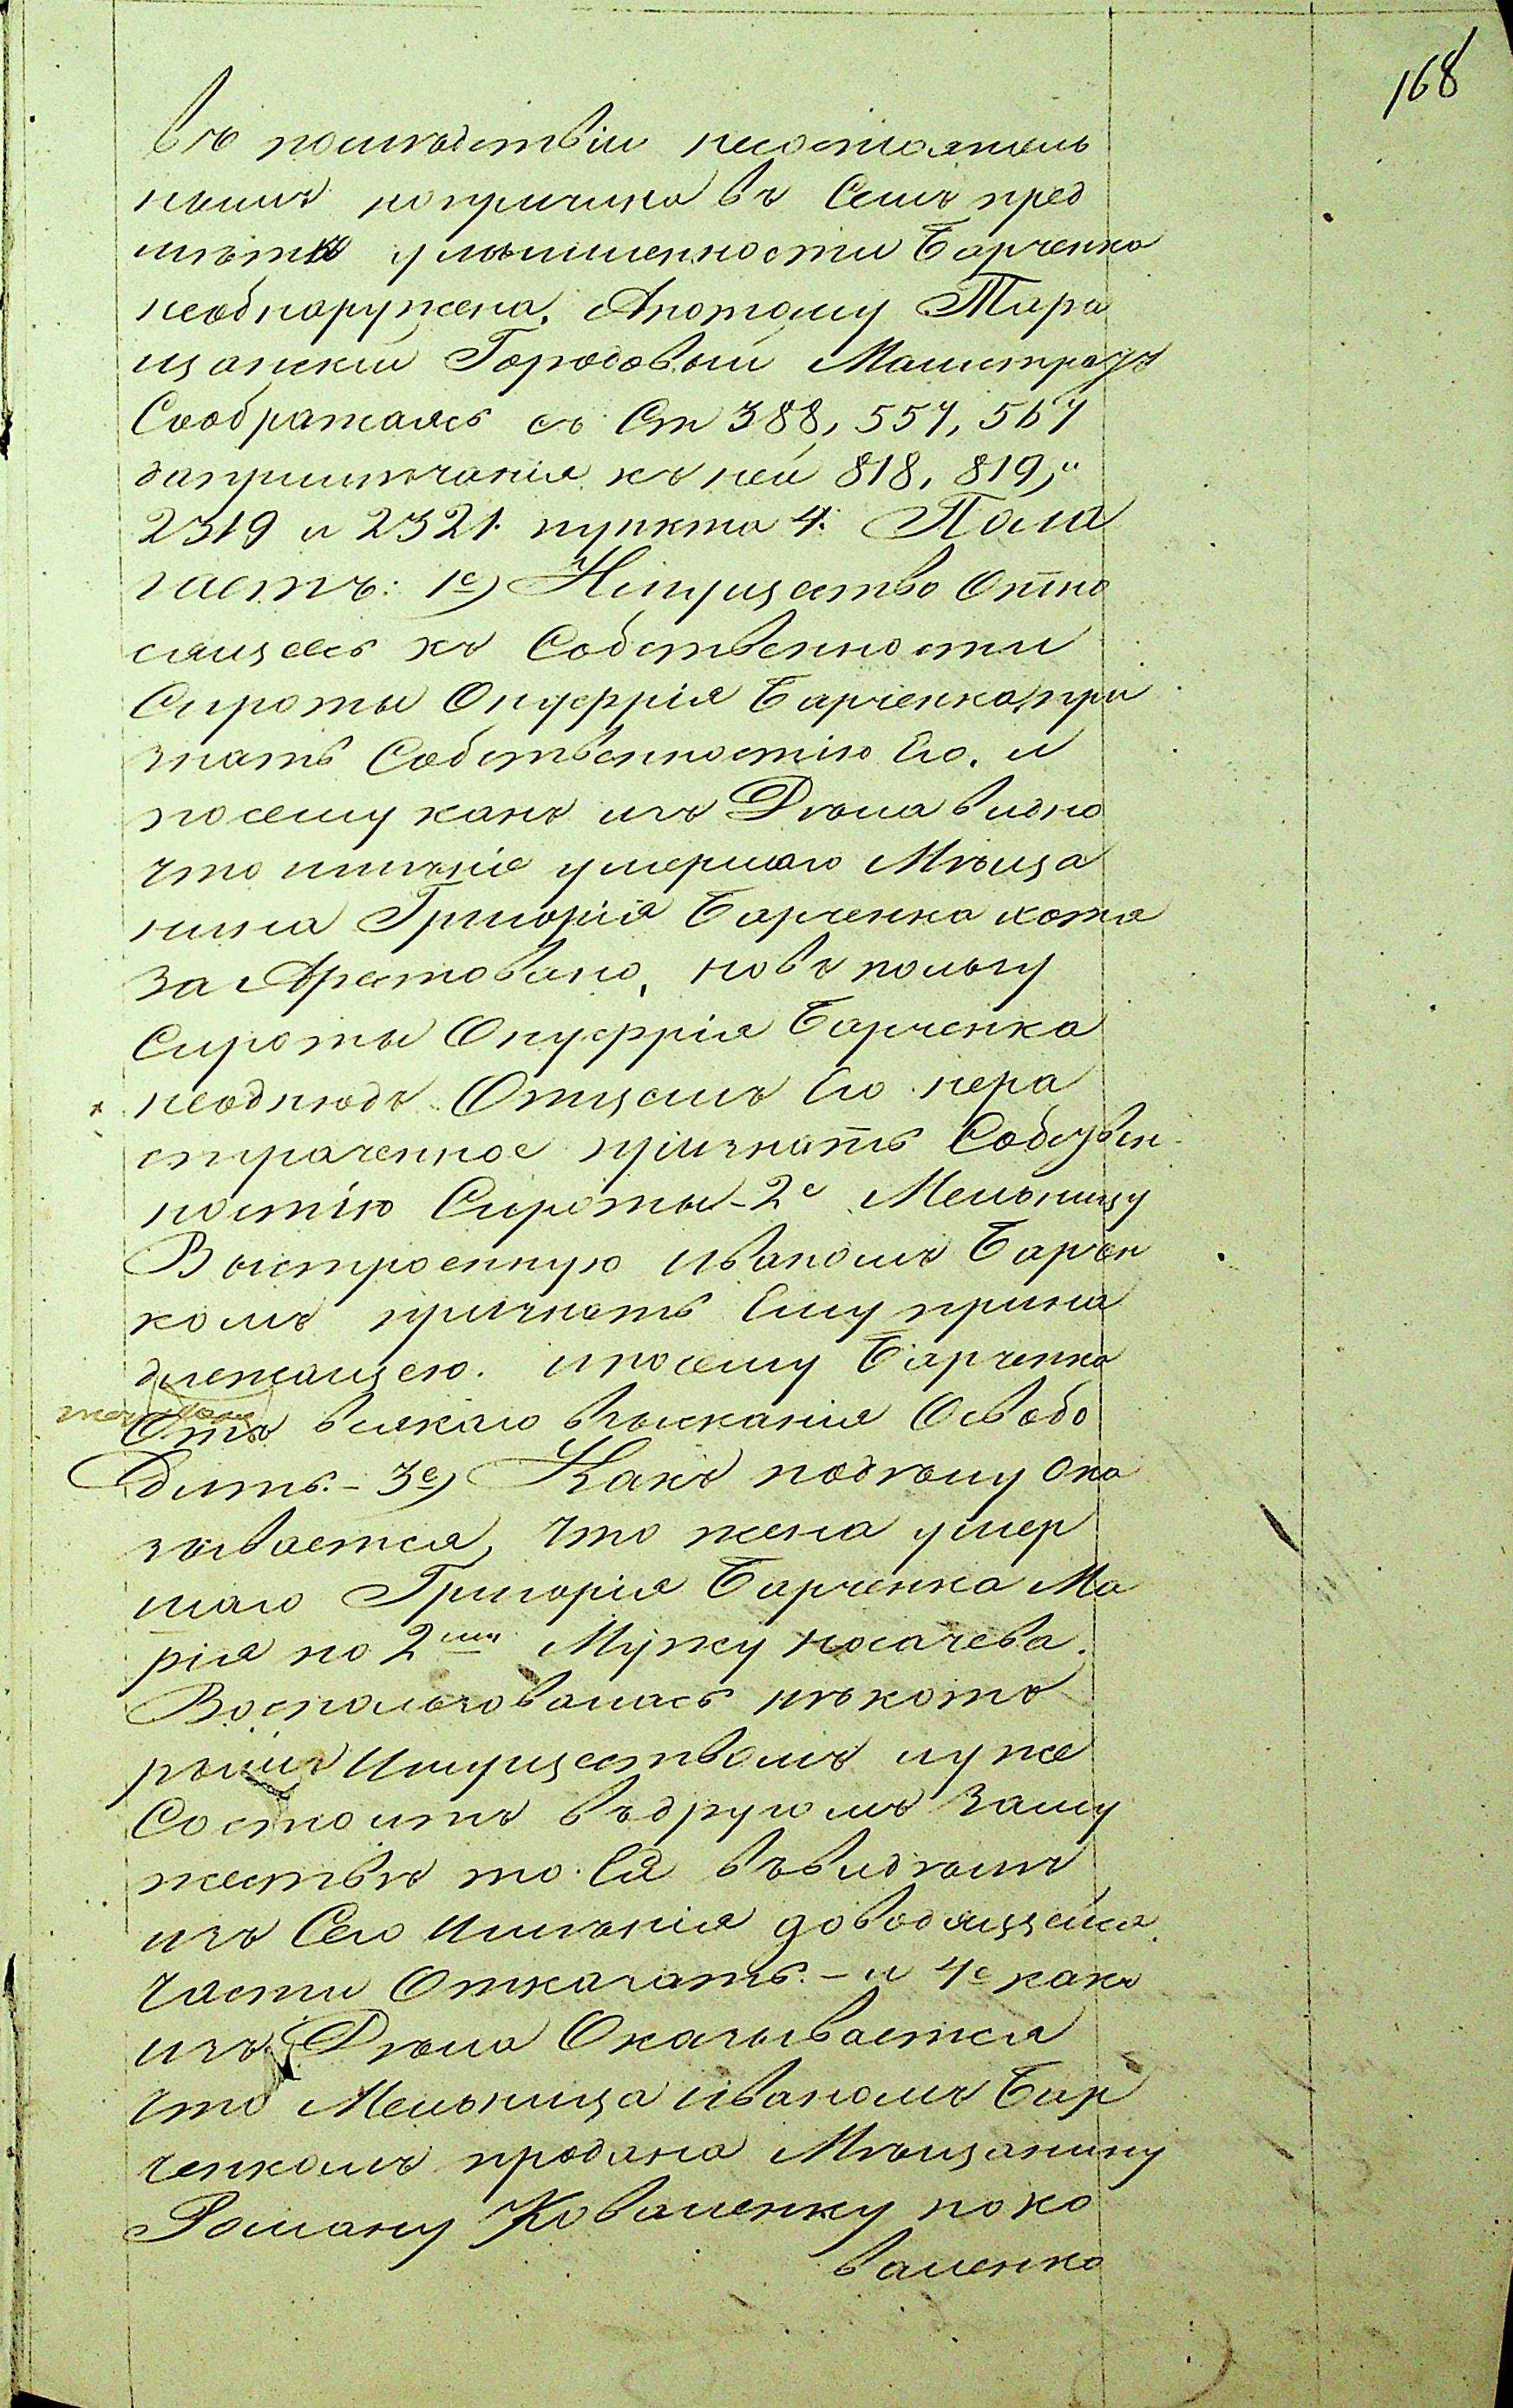 168
въ послѣдствіи несостоятель
нымъ попричинѣ въ Семъ пред
мѣтѣ умышленности Барченка
необнаружена. Апотому Тара
щанскій Городовый Магистратъ
Соображаясь съ Ст 388, 557, 567
запримѣчанія къ ней 818, 819,
2319 и 2321. пункта 4. Пола
гаетъ: 1е) Имущество Отно
сящеесь къ Собственности
Сироты Онуфрія Барченка, при
знать Собственностію Его. и
посему какъ изъ Дѣла видно
что имѣніе умершаго Мѣща
нина Григорія Барченка хотя
за Арестовано, новъ пользу
Сироты Онуфрія Барченка
неоднюдь Отцемъ Его нера
страченное признать Собствен
ностію Сироты - 2е Мельницу
Выстроенную Иваномъ Барчен
комъ признать Ему прина
длежащею. ипосему Барченка
Отъ всякаго взысканія Освобо
дить. - 3е) Какъ подѣлу Ока
зывается, что жена умер
шаго Григорія Барченка Ма
рія по 2му Мужу Носачева.
Воспользовалась нѣкото
рымъ Имуществомъ иуже
Состоитъ въдругомъ Заму
жествѣ то Ей въвидѣлѣ
изъ Сего Имѣнія доводящейся
части Отказать. - и 4е какъ
изъ Дѣла Оказывается
что Мельница Иваномъ Бар
ченкомъ продана Мѣщанину
Роману Коваленку Ноко
валенко